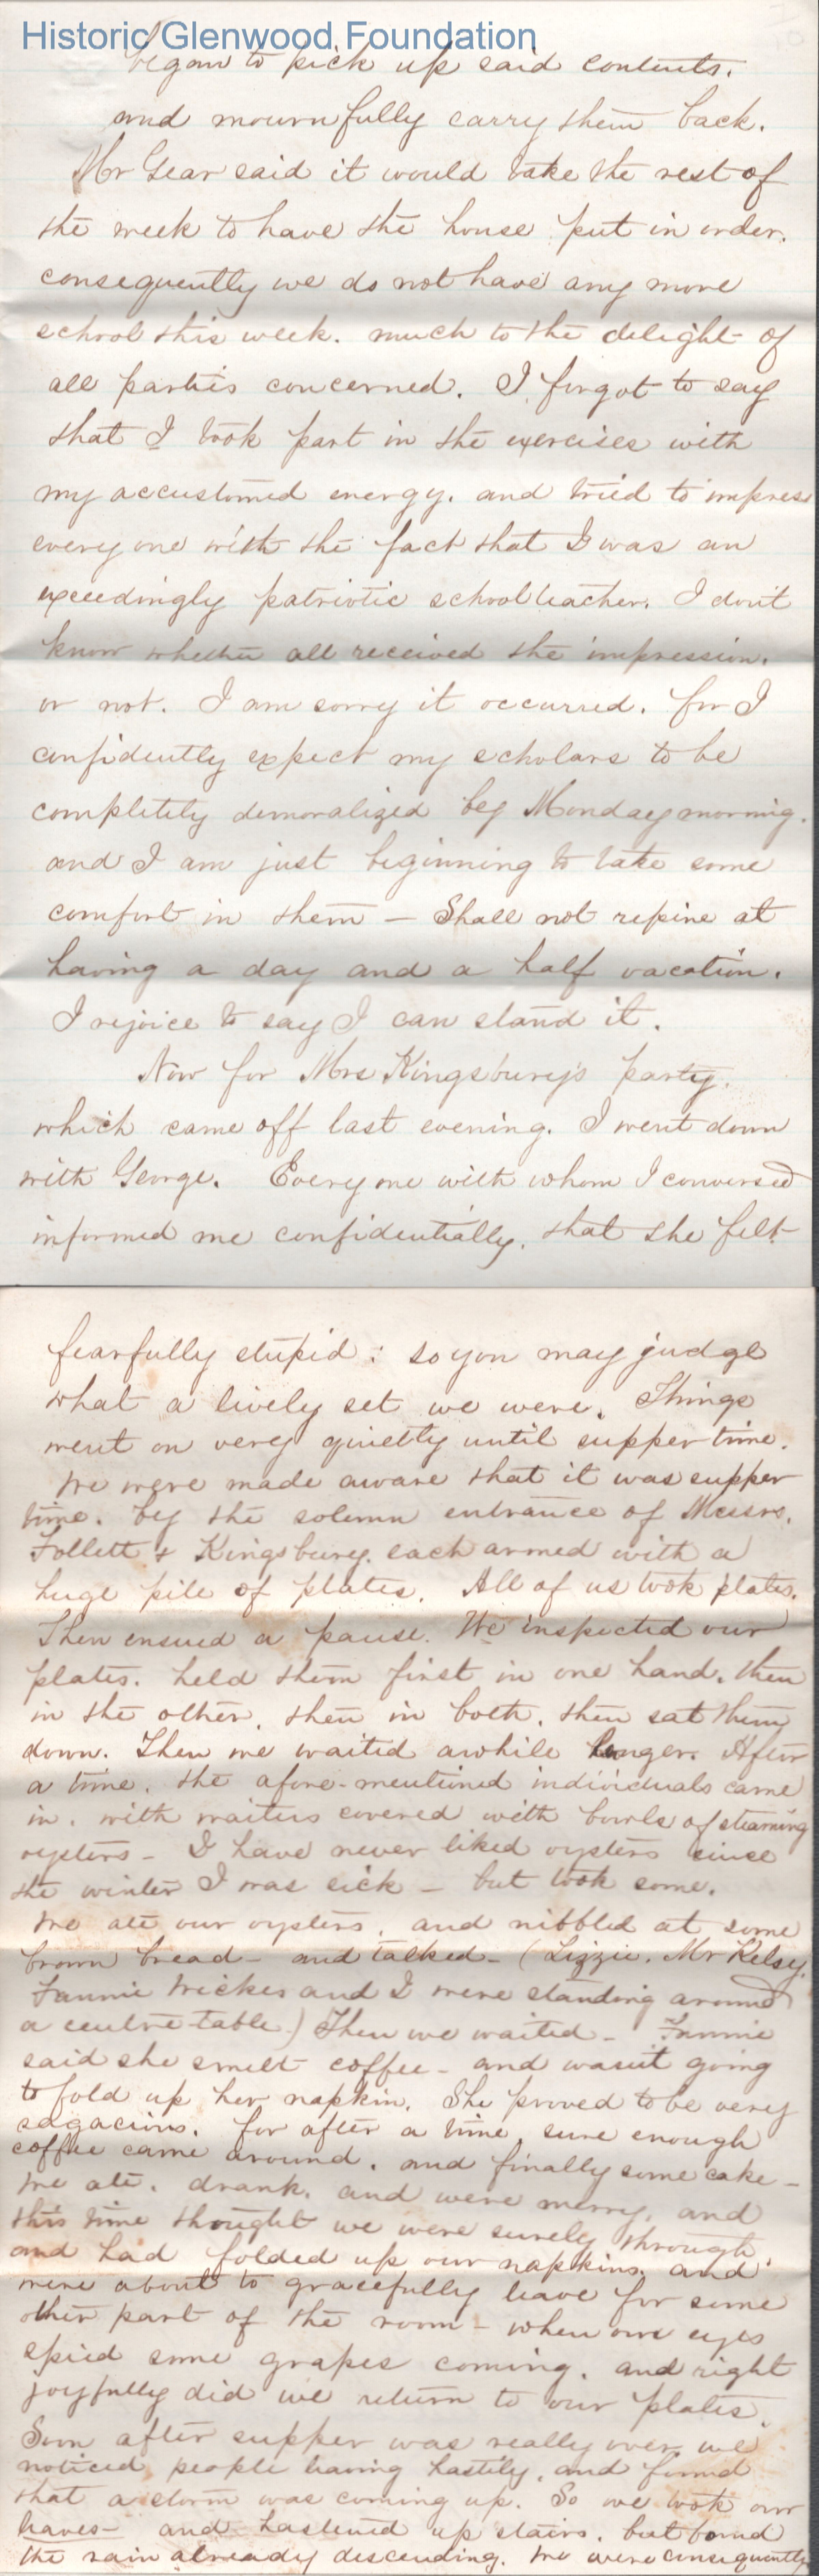 Historic Glenwood Foundation
began to pick up said contents.
and mournfully carry them back.
Mr Gear said it would take the rest of
the week to have the house put in order.
consequently we do not have any more
school this week. much to the delight of
all parties concerned. I forgot to say
that I took part in the exercises with
my accustomed energy. and tried to impress
every one with the fact that I was an
exceedingly patriotic schoolteacher. I don't
know whether all received the impression.
or not. I am sorry it occurred. for I
confidently expect my scholars to be
completely demoralized by Monday morning.
and I am just beginning to take some
comfort in them — Shall not repine at
having a day and a half vacation.
I rejoice to say I can stand it.
Now for Mrs Kingsbury's party.
which came off last evening. I went down
with George. Every one with whom I conversed
informed me confidentially. that she felt
fearfully stupid: so you may judge
what a lively set we were. Things
went on very quietly until supper time.
We were made aware that it was supper
time. by the solemn entrance of Messrs.
Follett & Kingsbury. each armed with a
huge pile of plates. All of us took plates.
Then ensued a pause. We inspected our
plates. held them first in one hand. then
in the other, then in both. then sat them
down. Then we waited awhile longer. After
a time. the afore-mentioned individuals came
in. with waiters covered with bowls of steaming
oysters - I have never liked oysters since
the winter I was sick - but took some.
We ate our oysters, and nibbled at some
brown bread - and talked - (Lizzie. Mr Kelsey,
Fannie Wickes and I were standing around
a centre-table.) Then we waited - Fannie
said she smelt coffee - and wasn't going
to fold up her napkin. She proved to be very
sagacious. for after a time, sure enough
coffee came around. and finally some cake -
We ate. drank. and were merry, and
this time thought we were surely through.
and had folded up our napkins. and
were about to gracefully leave for some
other part of the room - when our eyes
spied some grapes coming. and right
joyfully did we return to our plates.
Soon after supper was really over we
noticed people leaving hastily, and found
that a storm was coming up. So we took our
leaves - and hastened up stairs. but found
the rain already descending. We were consequently